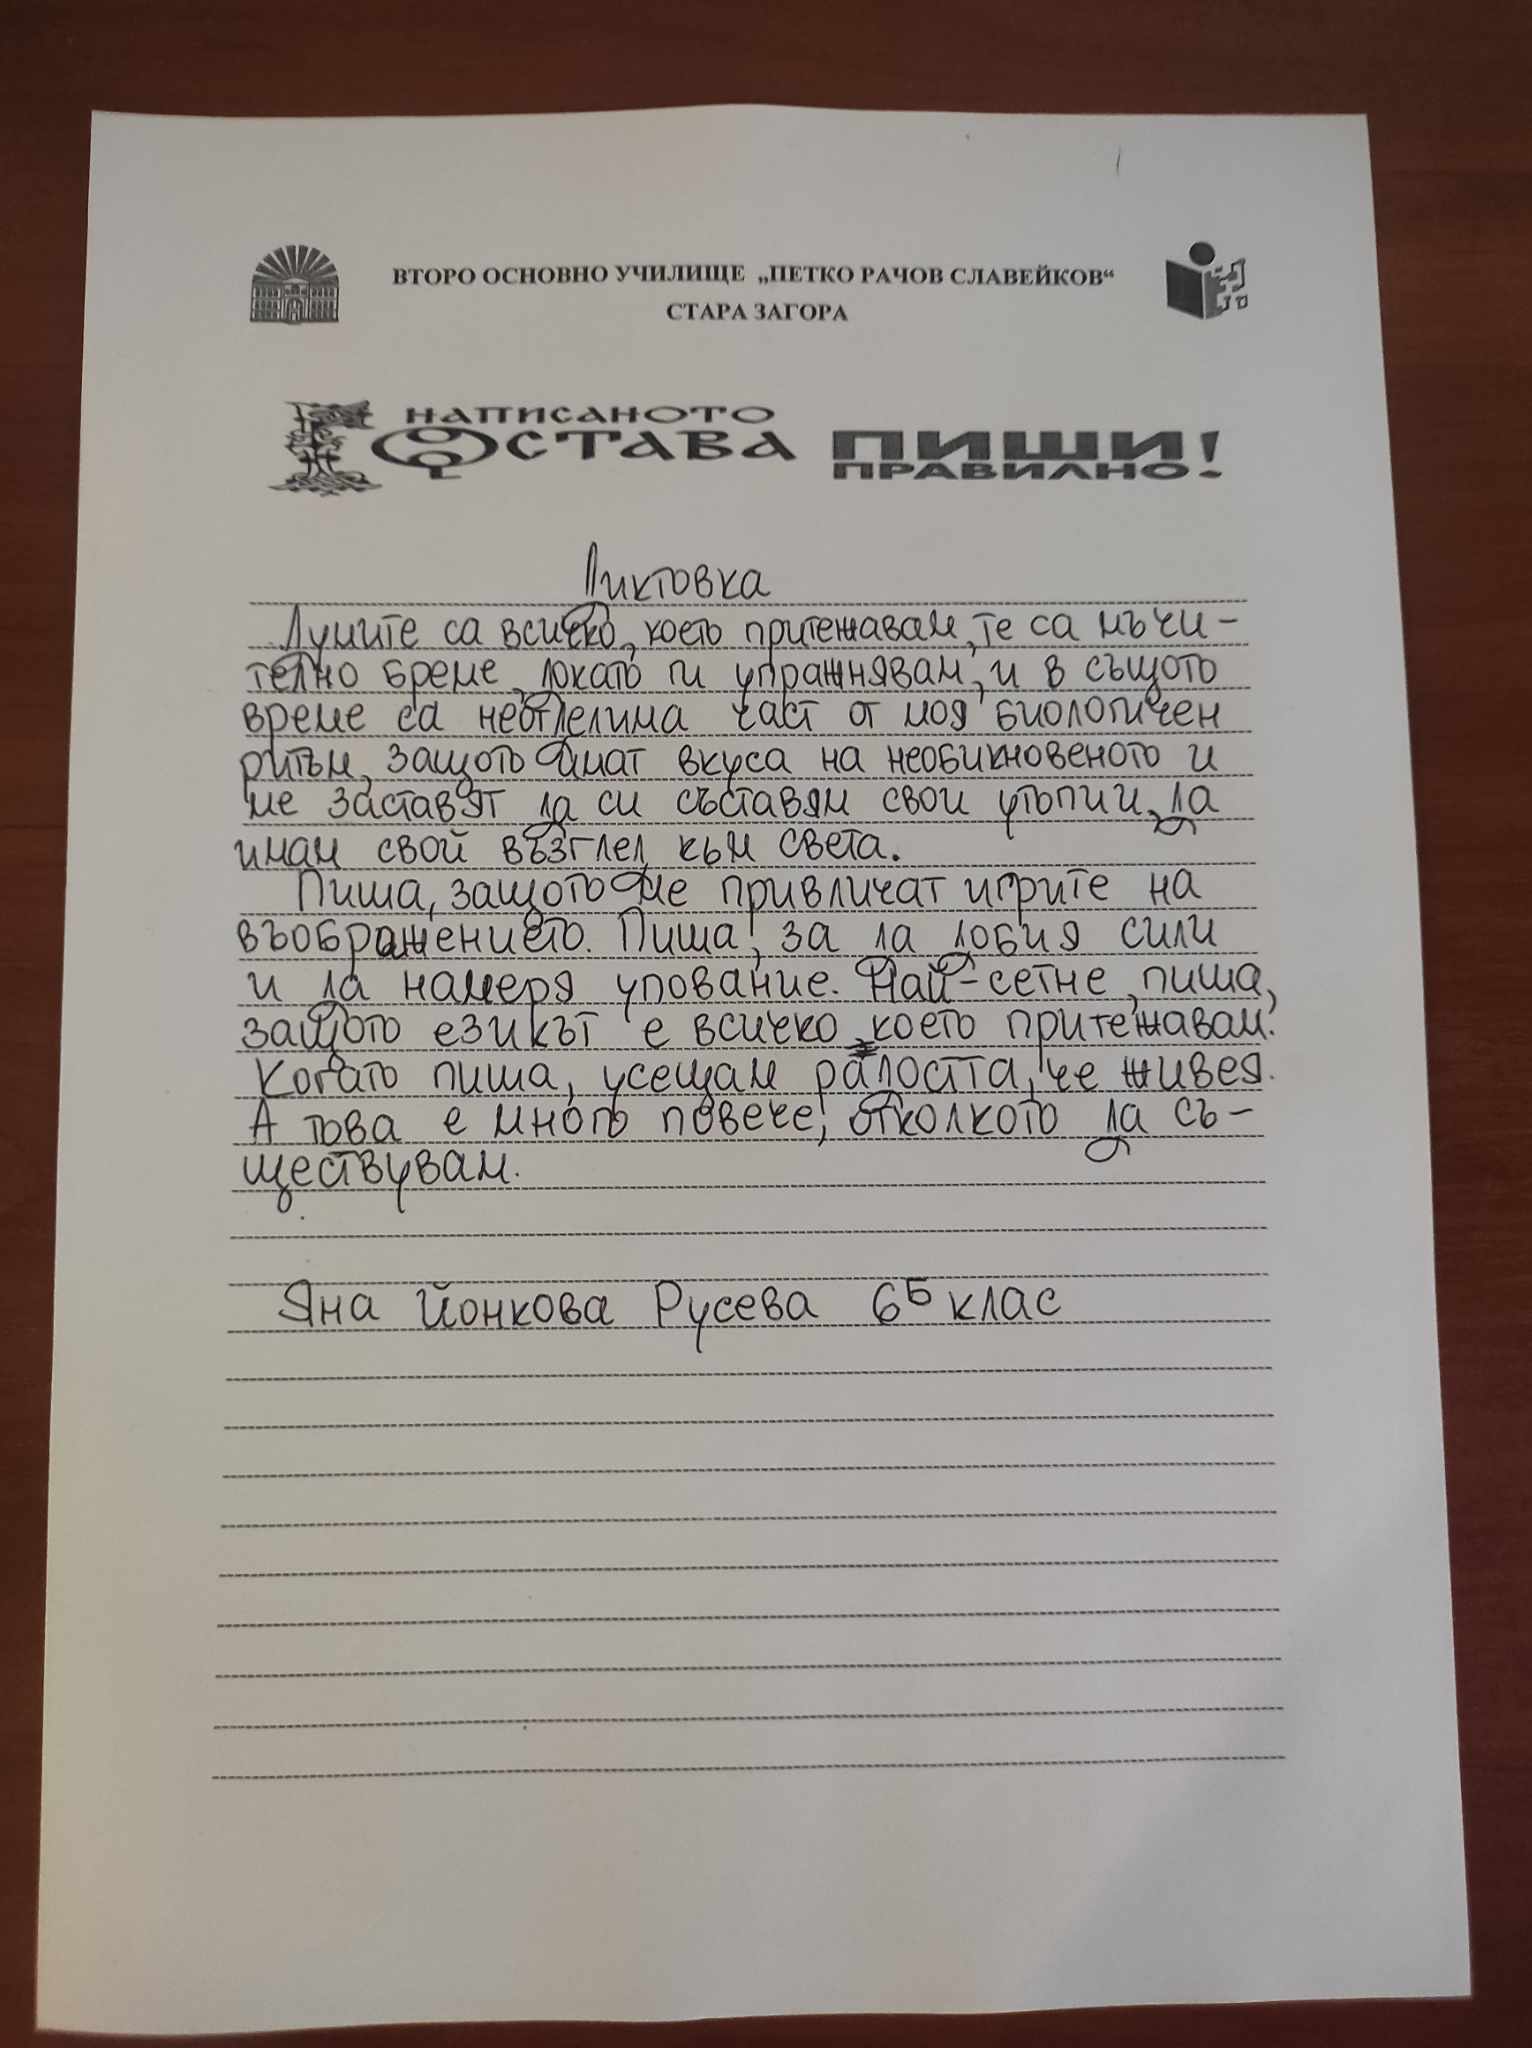 ВТОРО ОСНОВНО УЧИЛИЩЕ „ПЕТКО РАЧОВ СЛАВЕЙКОВ“
СТАРА ЗАГОРА
НАПИСАНОТО
ОСТАВА ПИШИ
ПРАВИЛНО!
Диктовка
Думите са всичко, което притежавам, те са мъчи-
телно бреме, докато ги упражнявам, и в същото
време са неотделима част от моя биологичен
ритъм, защото имат вкуса на необикновеното и
ме заставят да си съставям свои утопии, да
имам свой възглед към света.
Пиша, защото ме привличат игрите на
въображението. Пиша, за да добия сили
и да намеря упование. Най-сетне, пиша,
защото езикът е всичко, което притежавам.
Когато пиша, усещам радостта, че живея.
А това е много повече, отколкото да съ-
ществувам.
Яна Йонкова Русева 6Б клас